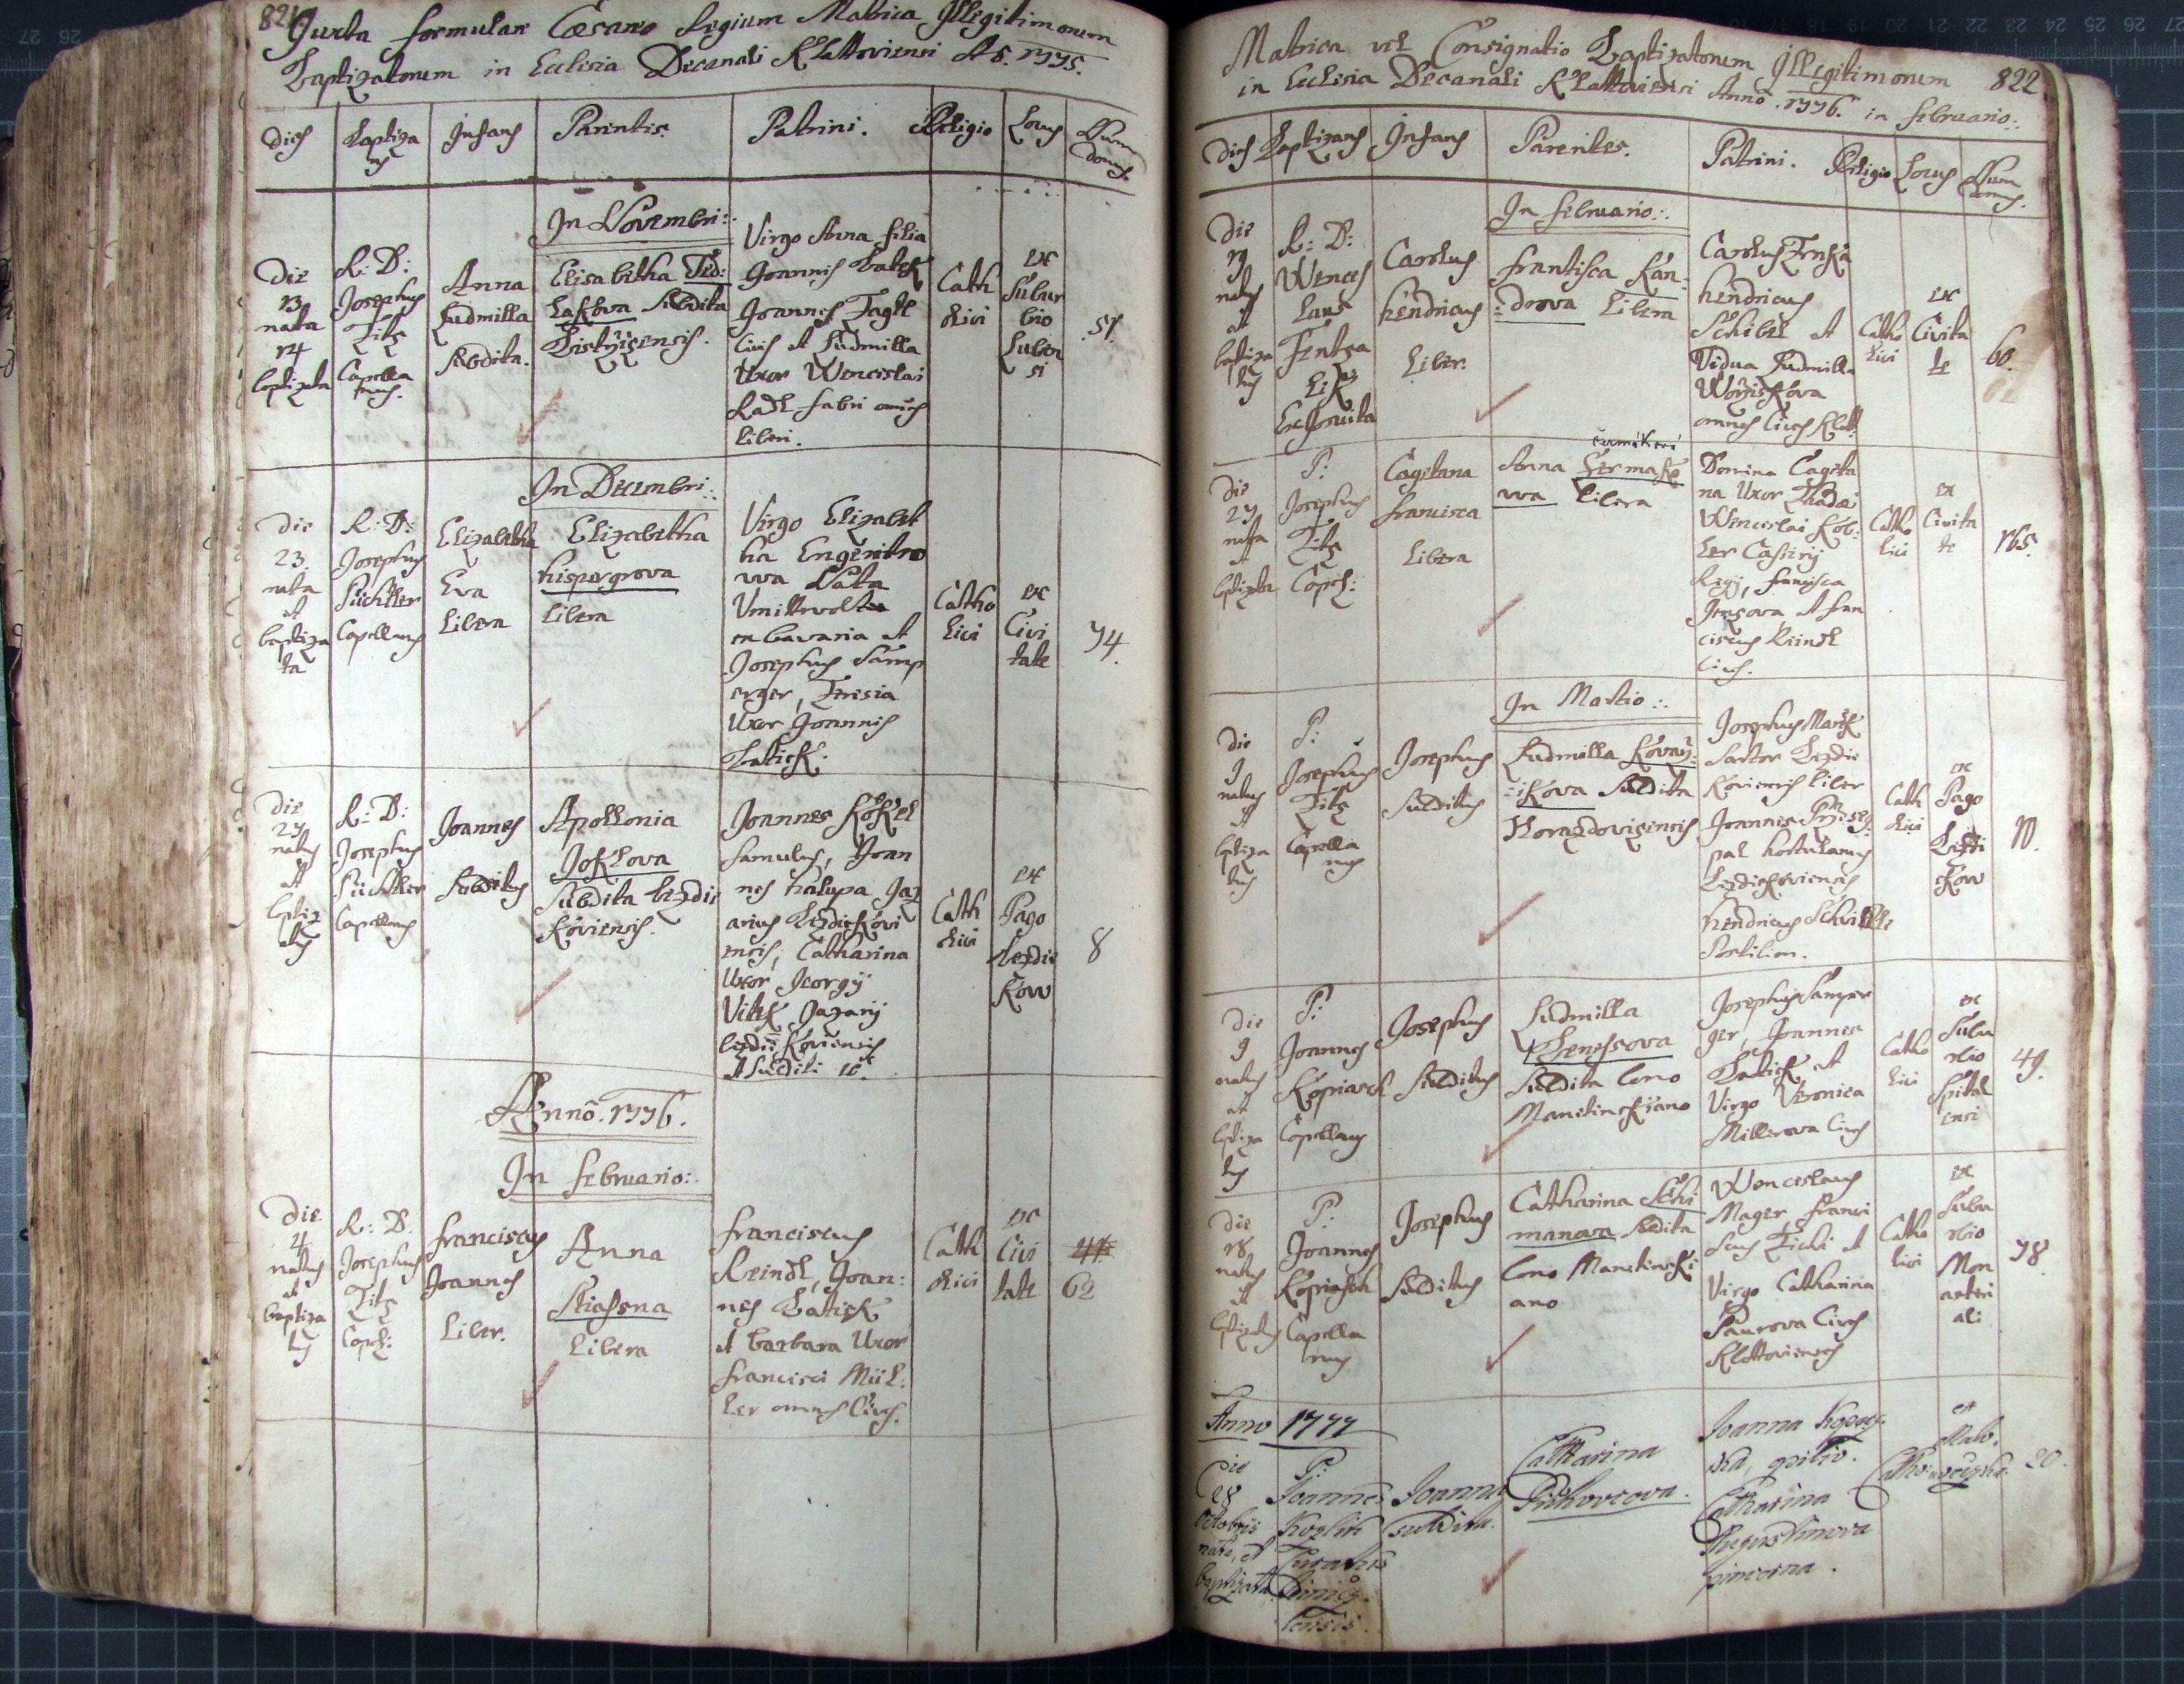 821
Juxta formulam Cæsareo Regium Matrica Illegitimorum
Baptizatorum in Ecclesia Decanali Klattoviensi Ao. 1775.
Dies Baptizans Infans Parentes Patrini. Religio Locus Num domus
In Novembri:
Die
13
nata
14
baptizata
R: D:
Josephus
Titz
Capella
nus.
Anna
Ludmilla
Subdita.
Elisabetha
Laskova Subdita
Bistržicensis.
Virgo Anna filia
Joannis Batiek
Joannes Tagtl
Civis et Ludmilla
Uxor Wenceslai
Radl fabri omnes
liberi.
Cath
olici
ex
Subur
bio
Luben
si
51.
In Decembri:
Die
23.
nata
et
baptiza
ta
R: D:
Josephus
Püchtler
Capellanus
Elizabetha
Eva
Libera
Elizabetha
hispergrova
libera
Virgo Elizabet
ha Engentro
wa Nata
en bavaria et
Josephus Samp
erger, Teresia
Uxor Joannis
Batiek.
Catho
lici
ex
Civi
tate
74.
die
27
natus
et
baptiz
atus
R: D:
Josephus
Püchtler
Capellanus
Joannes
Subditus
Apollonia
Joklova
Subdita bezdie
koviensis.
Joannes Kökel
famulus, Joan
nes halupa Jaz
arius Bezdiekovi
ensis, Catharina
Uxor Georgÿ
Vitek Jazarÿ
bezdiekoviensis
et Subditi
Cath
olici
ex
Pago
bezdie
kow
8
Anno. 1776.
In februario:
Die
4
natus
et
baptiza
tus
R: D.
Josephus
Titz
Capel:
franciscus
Joannes
Liber.
Anna
Stiassna
Libera
franciscus
Reindl, Joan:
nes Batiek
et barbara Uxor
francisci Mül:
ler omnes Cives.
Cath
olici
ex
Civi
tate
62
Matrica vel Consignatio Baptizatorum Illegitimorum 822
in Ecclesia Decanali Klattoviensi Anno. 1776. in februario:
Dies Baptizans Infans Parentes. Patrini. Religio Locus Num domus.
In februario:
Die
19
natus
et
baptiza
tus
R: D:
Wences
laus
Exjesuita
Carolus
hendricus
Liber.
frantisca Kan=
=drova Libera
Carolus Trnka
hendricus
Schibel et
Vidua Ludmilla
Woržiskova
omnes Cives Klatt.
Catho
lici
ex
Civita
te
60.
Die
27
nata
et
baptizata
P:
Josephus
Titz
Capel:
Cagetana
francisca
Libera
čermáková
Anna Čermako
wa libera
Domina Cageta
na Uxor Thadæi
Wenceslai Kob:
ler Cassirÿ
Regÿ, francisca
et fran
ciscus Reindl
Cives.
Catho
lici
ex
Civita
te
165.
In Martio:
die
9
natus
et
baptiza
tus
P:
Josephus
Titz
Capella
nus
Josephus
Subditus
Ludmilla Kovarž=
=ikova Subdita
Horazdovicensis
Josephus Marzik
Sartor Bezdie
koviensis liber
Joannes
hortulanus
Bezdiekoviensis
hendricus
Postilion.
Cath
olici
ex
Pago
Bezdi
ekow
10.
Die
9
natus
et
baptiza
tus
P:
Joannes
Kopriasch
Capellanus
Josephus
Subditus
Ludmilla
Subdita bono
Manetinskiano
Josephus Samper
ger, Joannes
Batiek et
Virgo Veronica
Millerova Cives
Catho
lici
ex
Subu
rbio
Spital
ensi
49.
Die
18
natus
et
baptizatus
P:
Joannes
Kopriasch
Capella
nus
Josephus
Subditus
Catharina Schi
manova Subdita
bono Manetinski
ano
Wenceslaus
Mager Franci
scus Zichi et
Virgo Catharina
Paurova Cives
Klattovienses
Catho
lici
ex
Subu
rbio
Mon
asteri
ali
78.
Anno 1777
Die
28
Octobris
nata, et
baptizata
P:
Joannes
Kozlik
Curatus
Joanna
subdita.
Catharina
Joanna
Catharina
Augustinova
pincerna.
20.